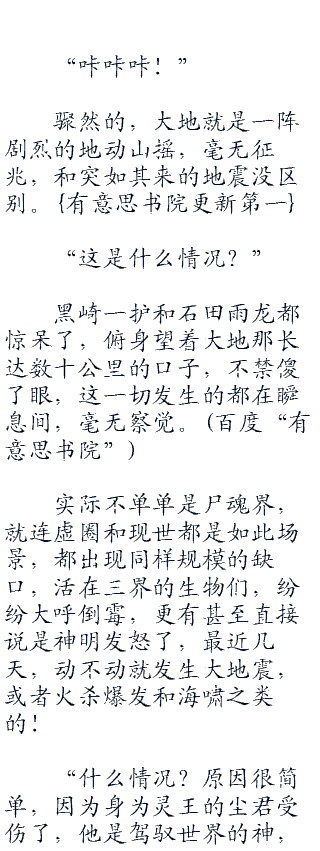 “咔咔咔！”
骤然的，大地就是一阵
剧烈的地动山摇，毫无征
兆，和突如其来的地震没区
别。{有意思书院更新第一}
“这是什么情况？”
黑崎一护和石田雨龙都
惊呆了，俯身望着大地那长
达数十公里的口子，不禁傻
了眼，这一切发生的都在瞬
息间，毫无察觉。(百度“有
意思书院”)
实际不单单是尸魂界，
就连虚圈和现世都是如此场
景，都出现同样规模的缺
口，活在三界的生物们，纷
纷大呼倒霉，更有甚至直接
说是神明发怒了，最近几
天，动不动就发生大地震，
或者火杀爆发和海啸之类
的！
“什么情况？原因很简
单，因为身为灵王的尘君受
伤了，他是驾驭世界的神，